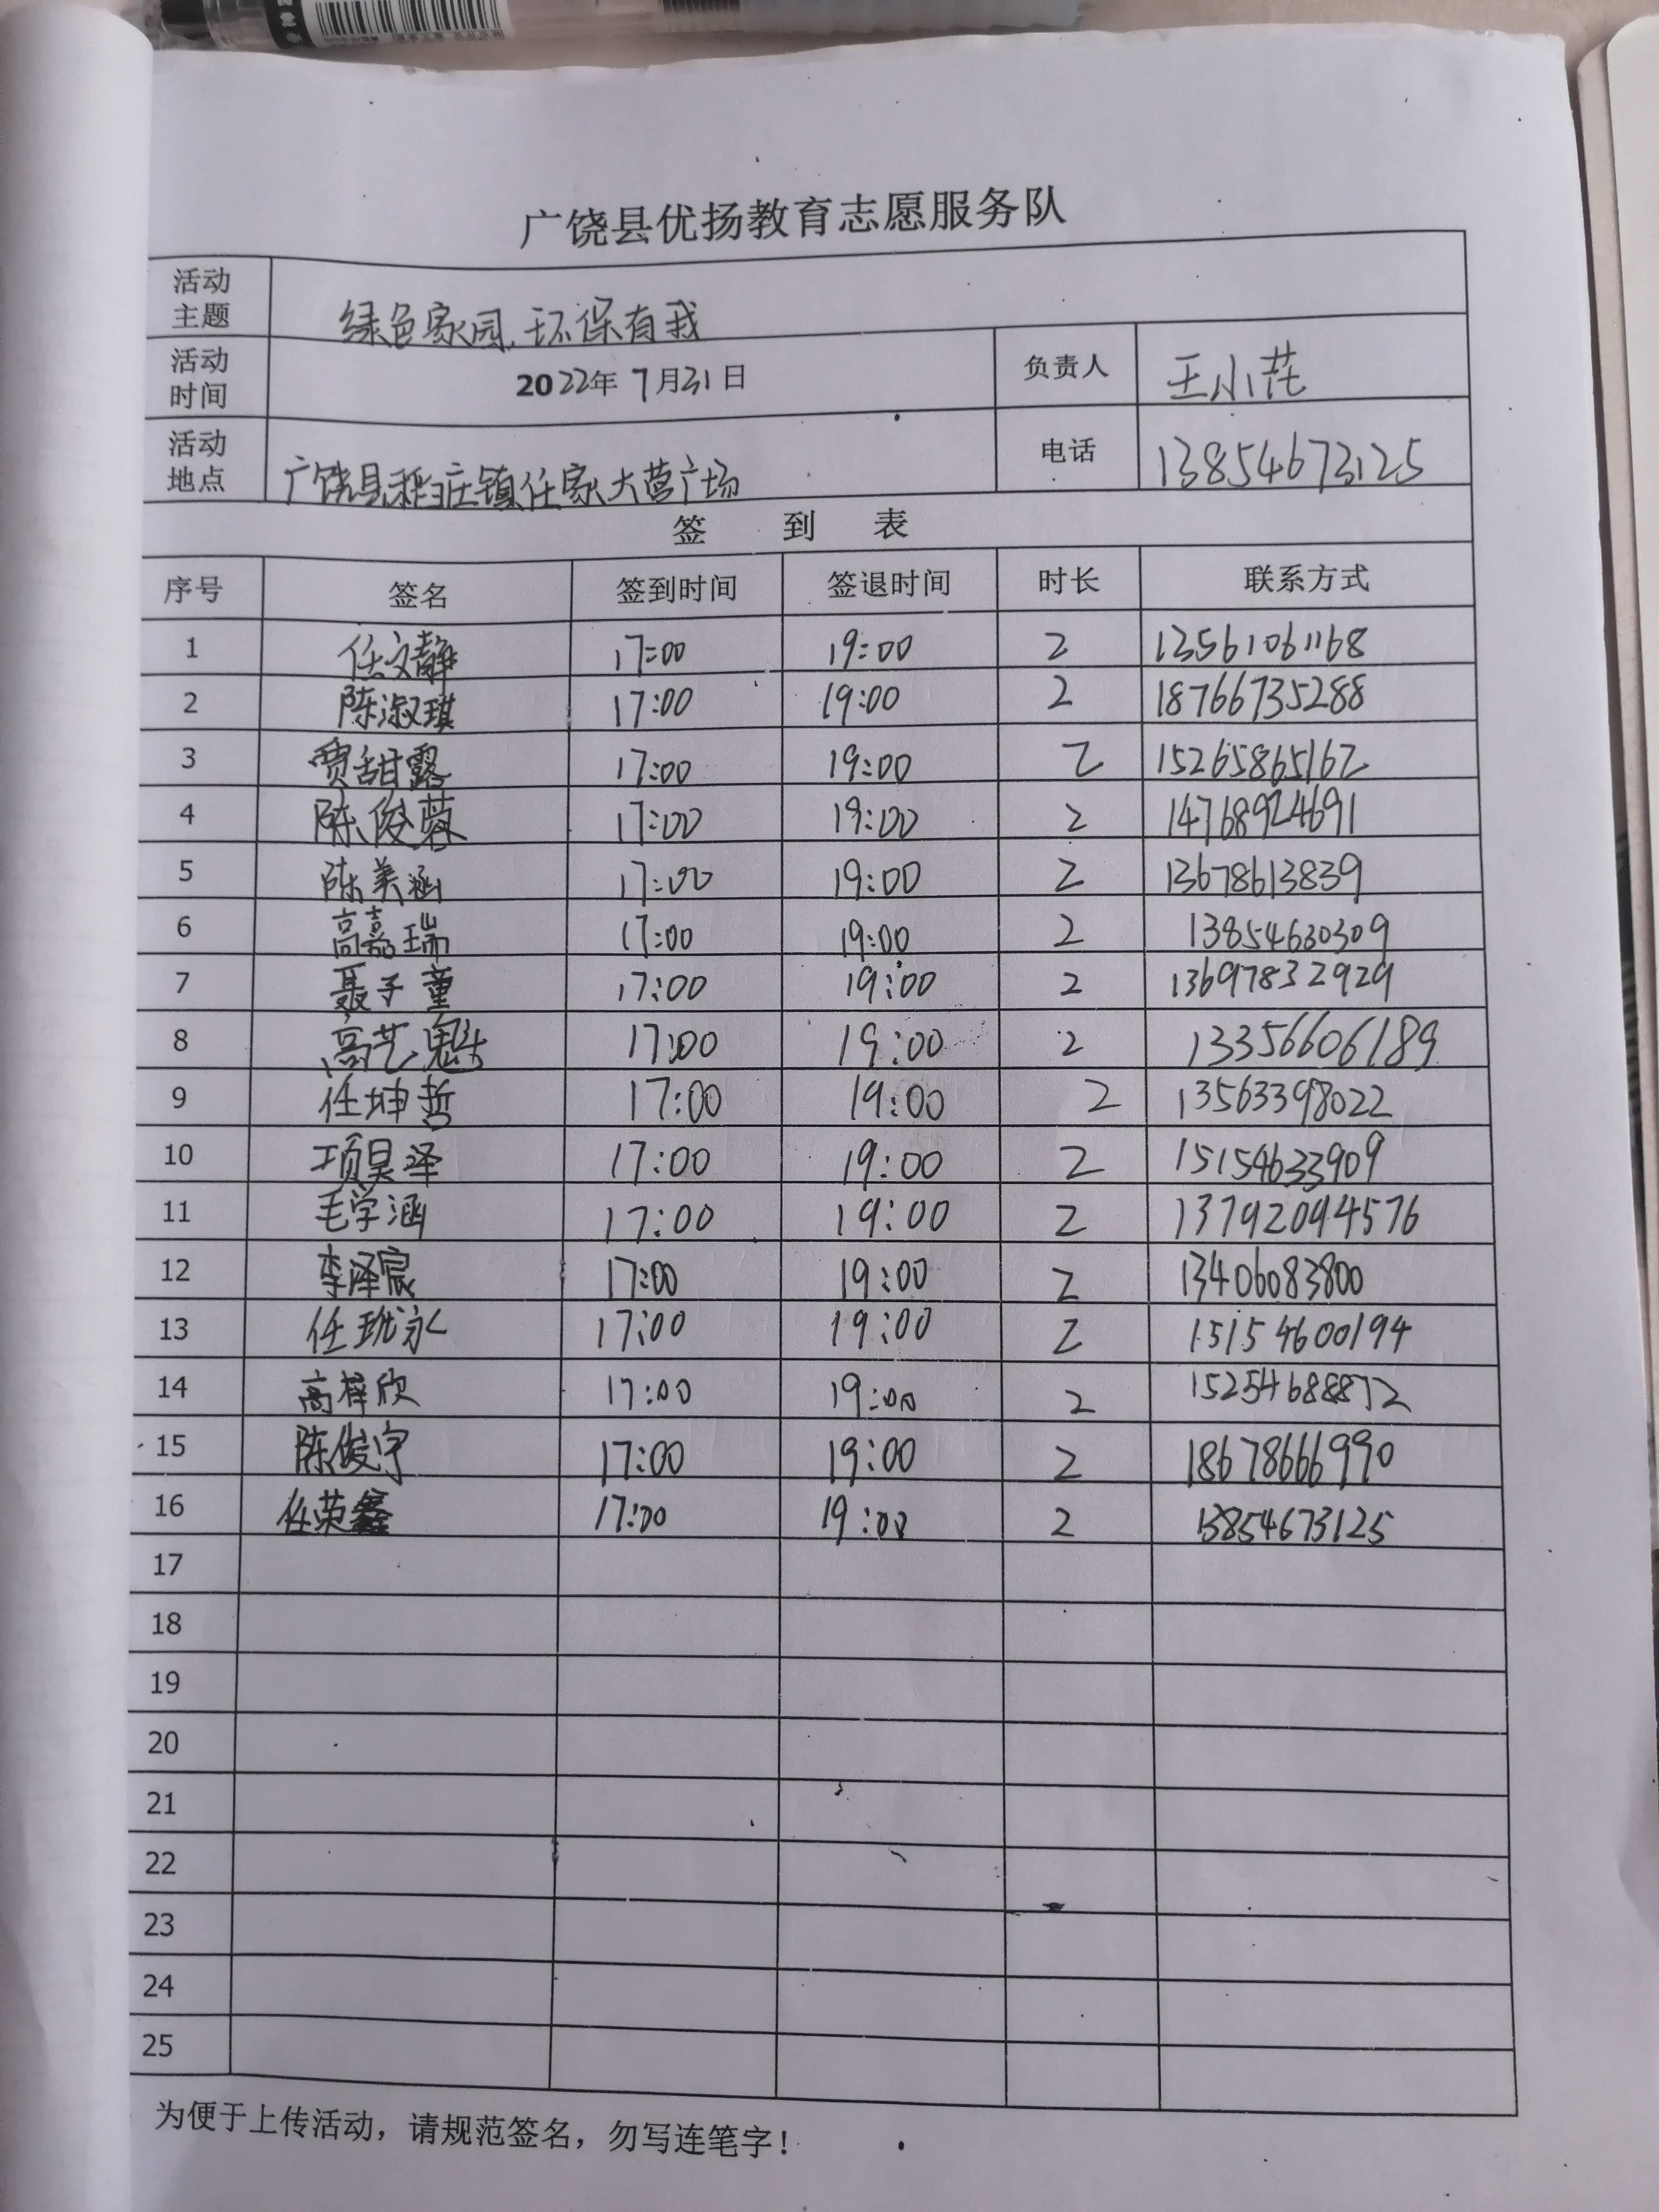 广饶县优扬教育志愿服务队
活动主题 绿色家园,环保有我
活动时间 2022年7月31日 负责人 王小花
活动地点 广饶县稻庄镇任家大营广场 电话 13854673125
签 到 表
序号 签名 签到时间 签退时间 时长 联系方式
1 任文静 17:00 19:00 2 13561061168
2 陈淑琪 17:00 19:00 2 18766735288
3 贾甜露 17:00 19:00 2 15265865162
4 陈俊蓉 17:00 19:00 2 14768924691
5 陈美涵 17:00 19:00 2 13678613839
6 高嘉瑞 17:00 19:00 2 13854630309
7 聂子童 17:00 19:00 2 13697832929
8 高艺魁 17:00 19:00 2 13356606189
9 任坤哲 17:00 19:00 2 13563398022
10 项昊泽 17:00 19:00 2 15154633909
11 毛学涵 17:00 19:00 2 13792094576
12 李泽宸 17:00 19:00 2 13406083800
13 任珑泳 17:00 19:00 2 15154600194
14 高梓欣 17:00 19:00 2 15254688872
15 陈俊宇 17:00 19:00 2 18678666990
16 任荣鑫 17:00 19:00 2 13854673125
17
18
19
20
21
22
23
24
25
为便于上传活动，请规范签名，勿写连笔字！